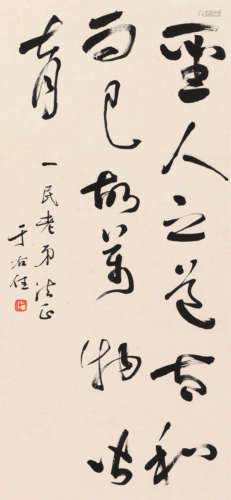 聖人之道太和
而已故萬物皆
育
一民老弟法正
于右任